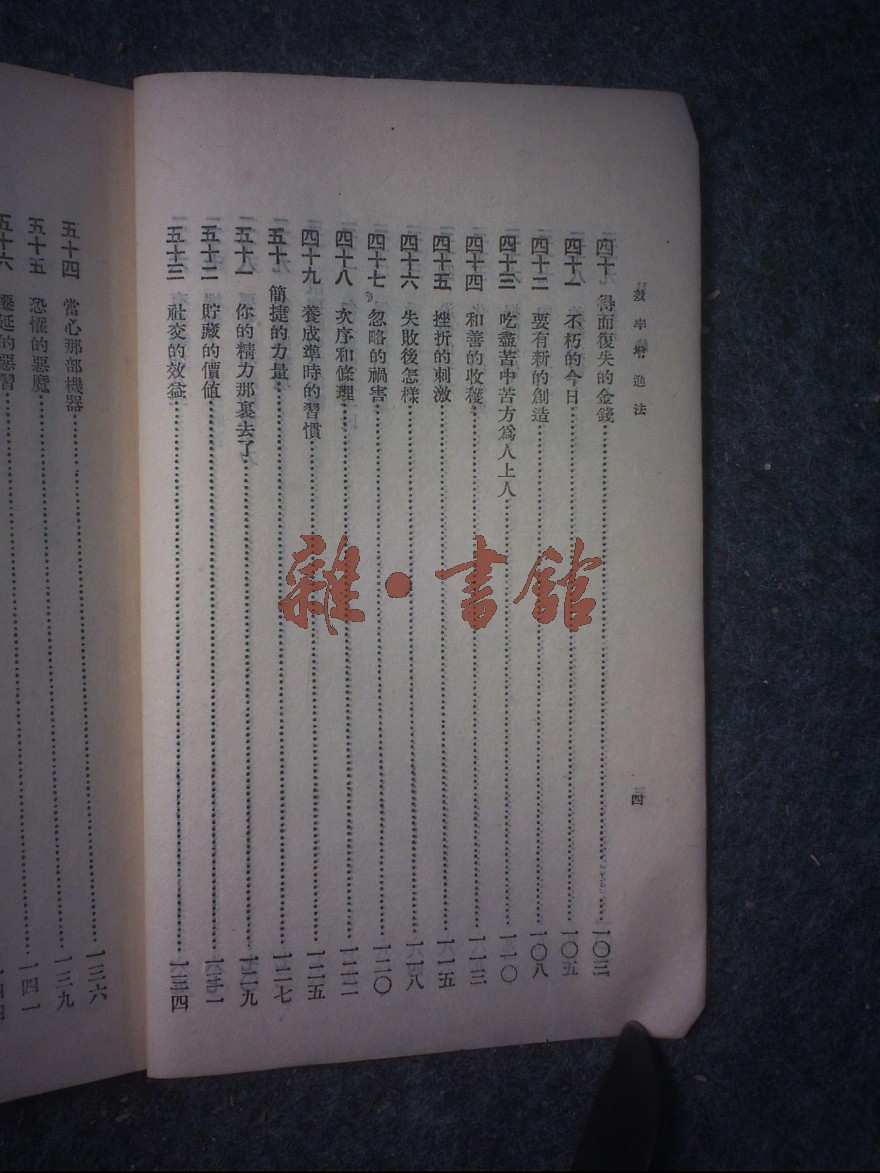 效率增進法
四
四十 得而復失的金錢……一〇三
四十一 不朽的今日……一〇五
四十二 要有新的創造……一〇八
四十三 吃盡苦中苦方爲人上人……一一〇
四十四 和善的收穫……一一三
四十五 挫折的刺激……一一五
四十六 失敗後怎樣……一一八
四十七 忽略的禍害……一二〇
四十八 次序和條理……一二二
四十九 養成準時的習慣……一二五
五十 簡捷的力量……一二七
五十一 你的精力那裏去了……一二九
五十二 貯藏的價值……一三一
五十三 社交的效益……一三四
五十四 當心那部機器……一三六
五十五 恐懼的惡魔……一三九
五十六 遷延的惡習……一四一
雜·書館